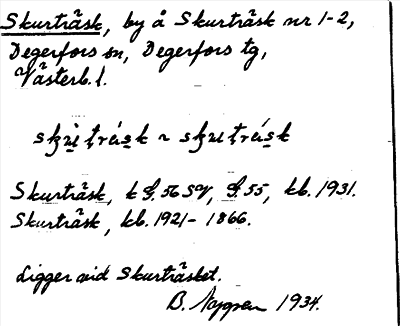 Skurträsk, by å Skurträsk nr 1-2,
Degerfors sn, Degerfors tg,
Västerb. l.
Skurträsk, k G. 56 SV, G. 55, kb. 1931.
Skurträsk, kb. 1921-1866.
Ligger vid Skurträsket.
B. 1934.